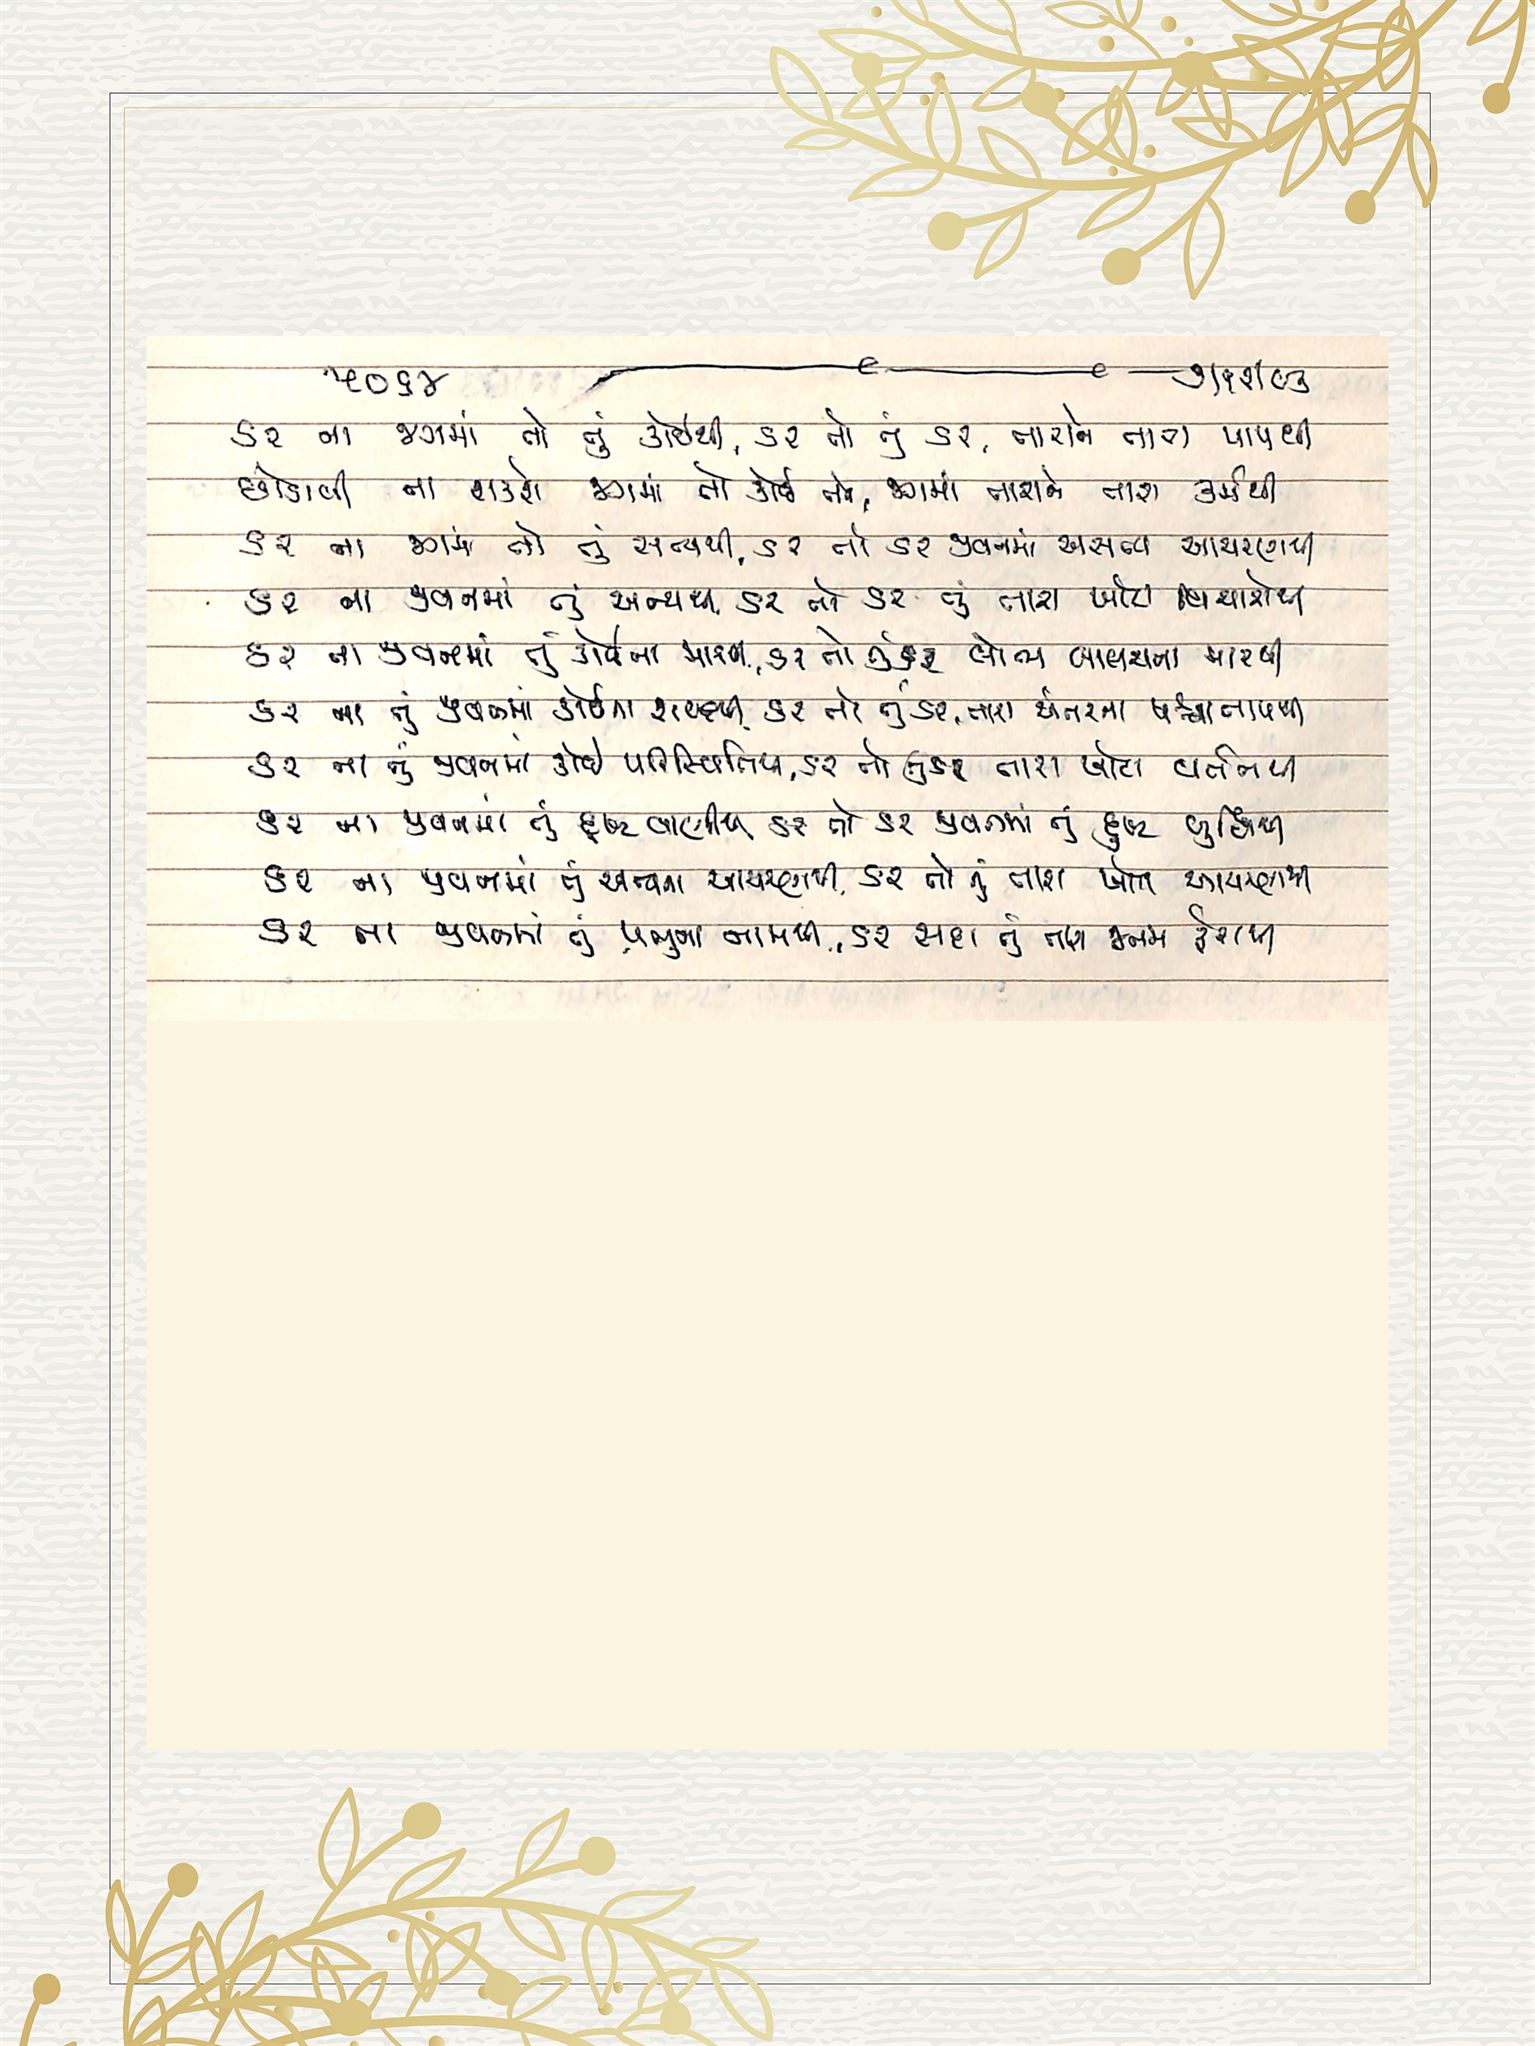 ૫૦૬૪ ૭/૧૨/૯૩
ડર ના જગમાં તો તું કોઈથી, ડર તો તું ડર, તારાને તારા પાપથી
છોડાવી ના શકશે જગમાં તો કોઈ તને, જગમાં તારાને તારા કર્મથી
ડર ના જગમાં તો તું સત્યથી, ડર તો ડર જીવનમાં અસત્ય આચરણથી
ડર ના જીવનમાં તું અન્યથી, ડર તો ડર તું તારા ખોટા વિચારોથી
ડર ના જીવનમાં તું કોઈના મારથી, ડર તો તું ડર લોભ લાલચના મારથી
ડર ના તું જીવનમાં કોઈના શબ્દથી, ડર તો તું ડર, તારા અંતરના પશ્ચાતાપથી
ડર ના તું જીવનમાં કોઈ પરિસ્થિતિથી, ડર તો તું ડર તારા ખોટા વર્તનથી
ડર ના જીવનમાં તું દુષ્ટ વાણીથી, ડર તો ડર જીવનમાં તું દુષ્ટ બુદ્ધિથી
ડર ના જીવનમાં તું અન્યના આચરણથી, ડર તો તું તારા ખોટા આચરણથી
ડર ના જીવનમાં તું પ્રભુના નામથી, ડર સદા તું તારા જનમ ફેરાથી